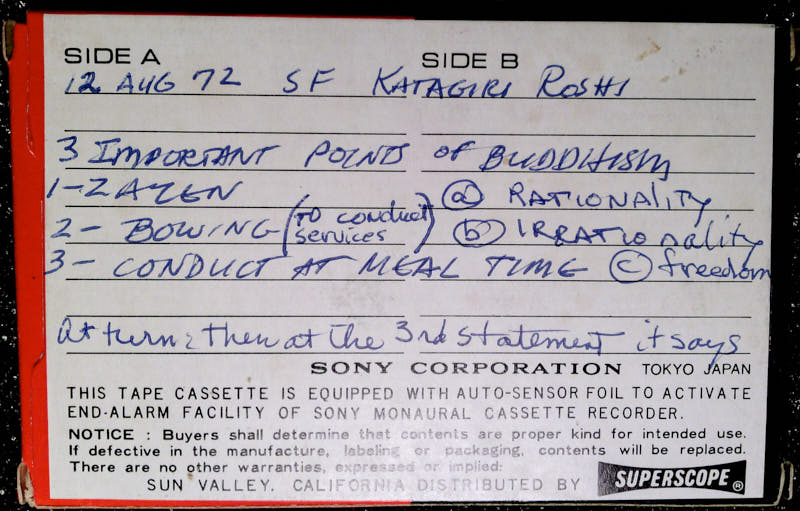 SIDE A SIDE B
12 AUG 72 SF KATAGIRI ROSHI
3 IMPORTANT POINTS of BUDDHISM
1 - ZAZEN ⓐ RATIONALITY
2 - BOWING (TO CONDUCT services) ⓑ IRRATIONALITY
3 - CONDUCT AT MEAL TIME ⓒ freedom
At turn: then at the 3rd statement it says
SONY CORPORATION TOKYO JAPAN
THIS TAPE CASSETTE IS EQUIPPED WITH AUTO-SENSOR FOIL TO ACTIVATE
END-ALARM FACILITY OF SONY MONAURAL CASSETTE RECORDER.
NOTICE : Buyers shall determine that contents are proper kind for intended use.
If defective in the manufacture, labeling or packaging, contents will be replaced.
There are no other warranties, expressed or implied:
SUN VALLEY, CALIFORNIA DISTRIBUTED BY SUPERSCOPE®